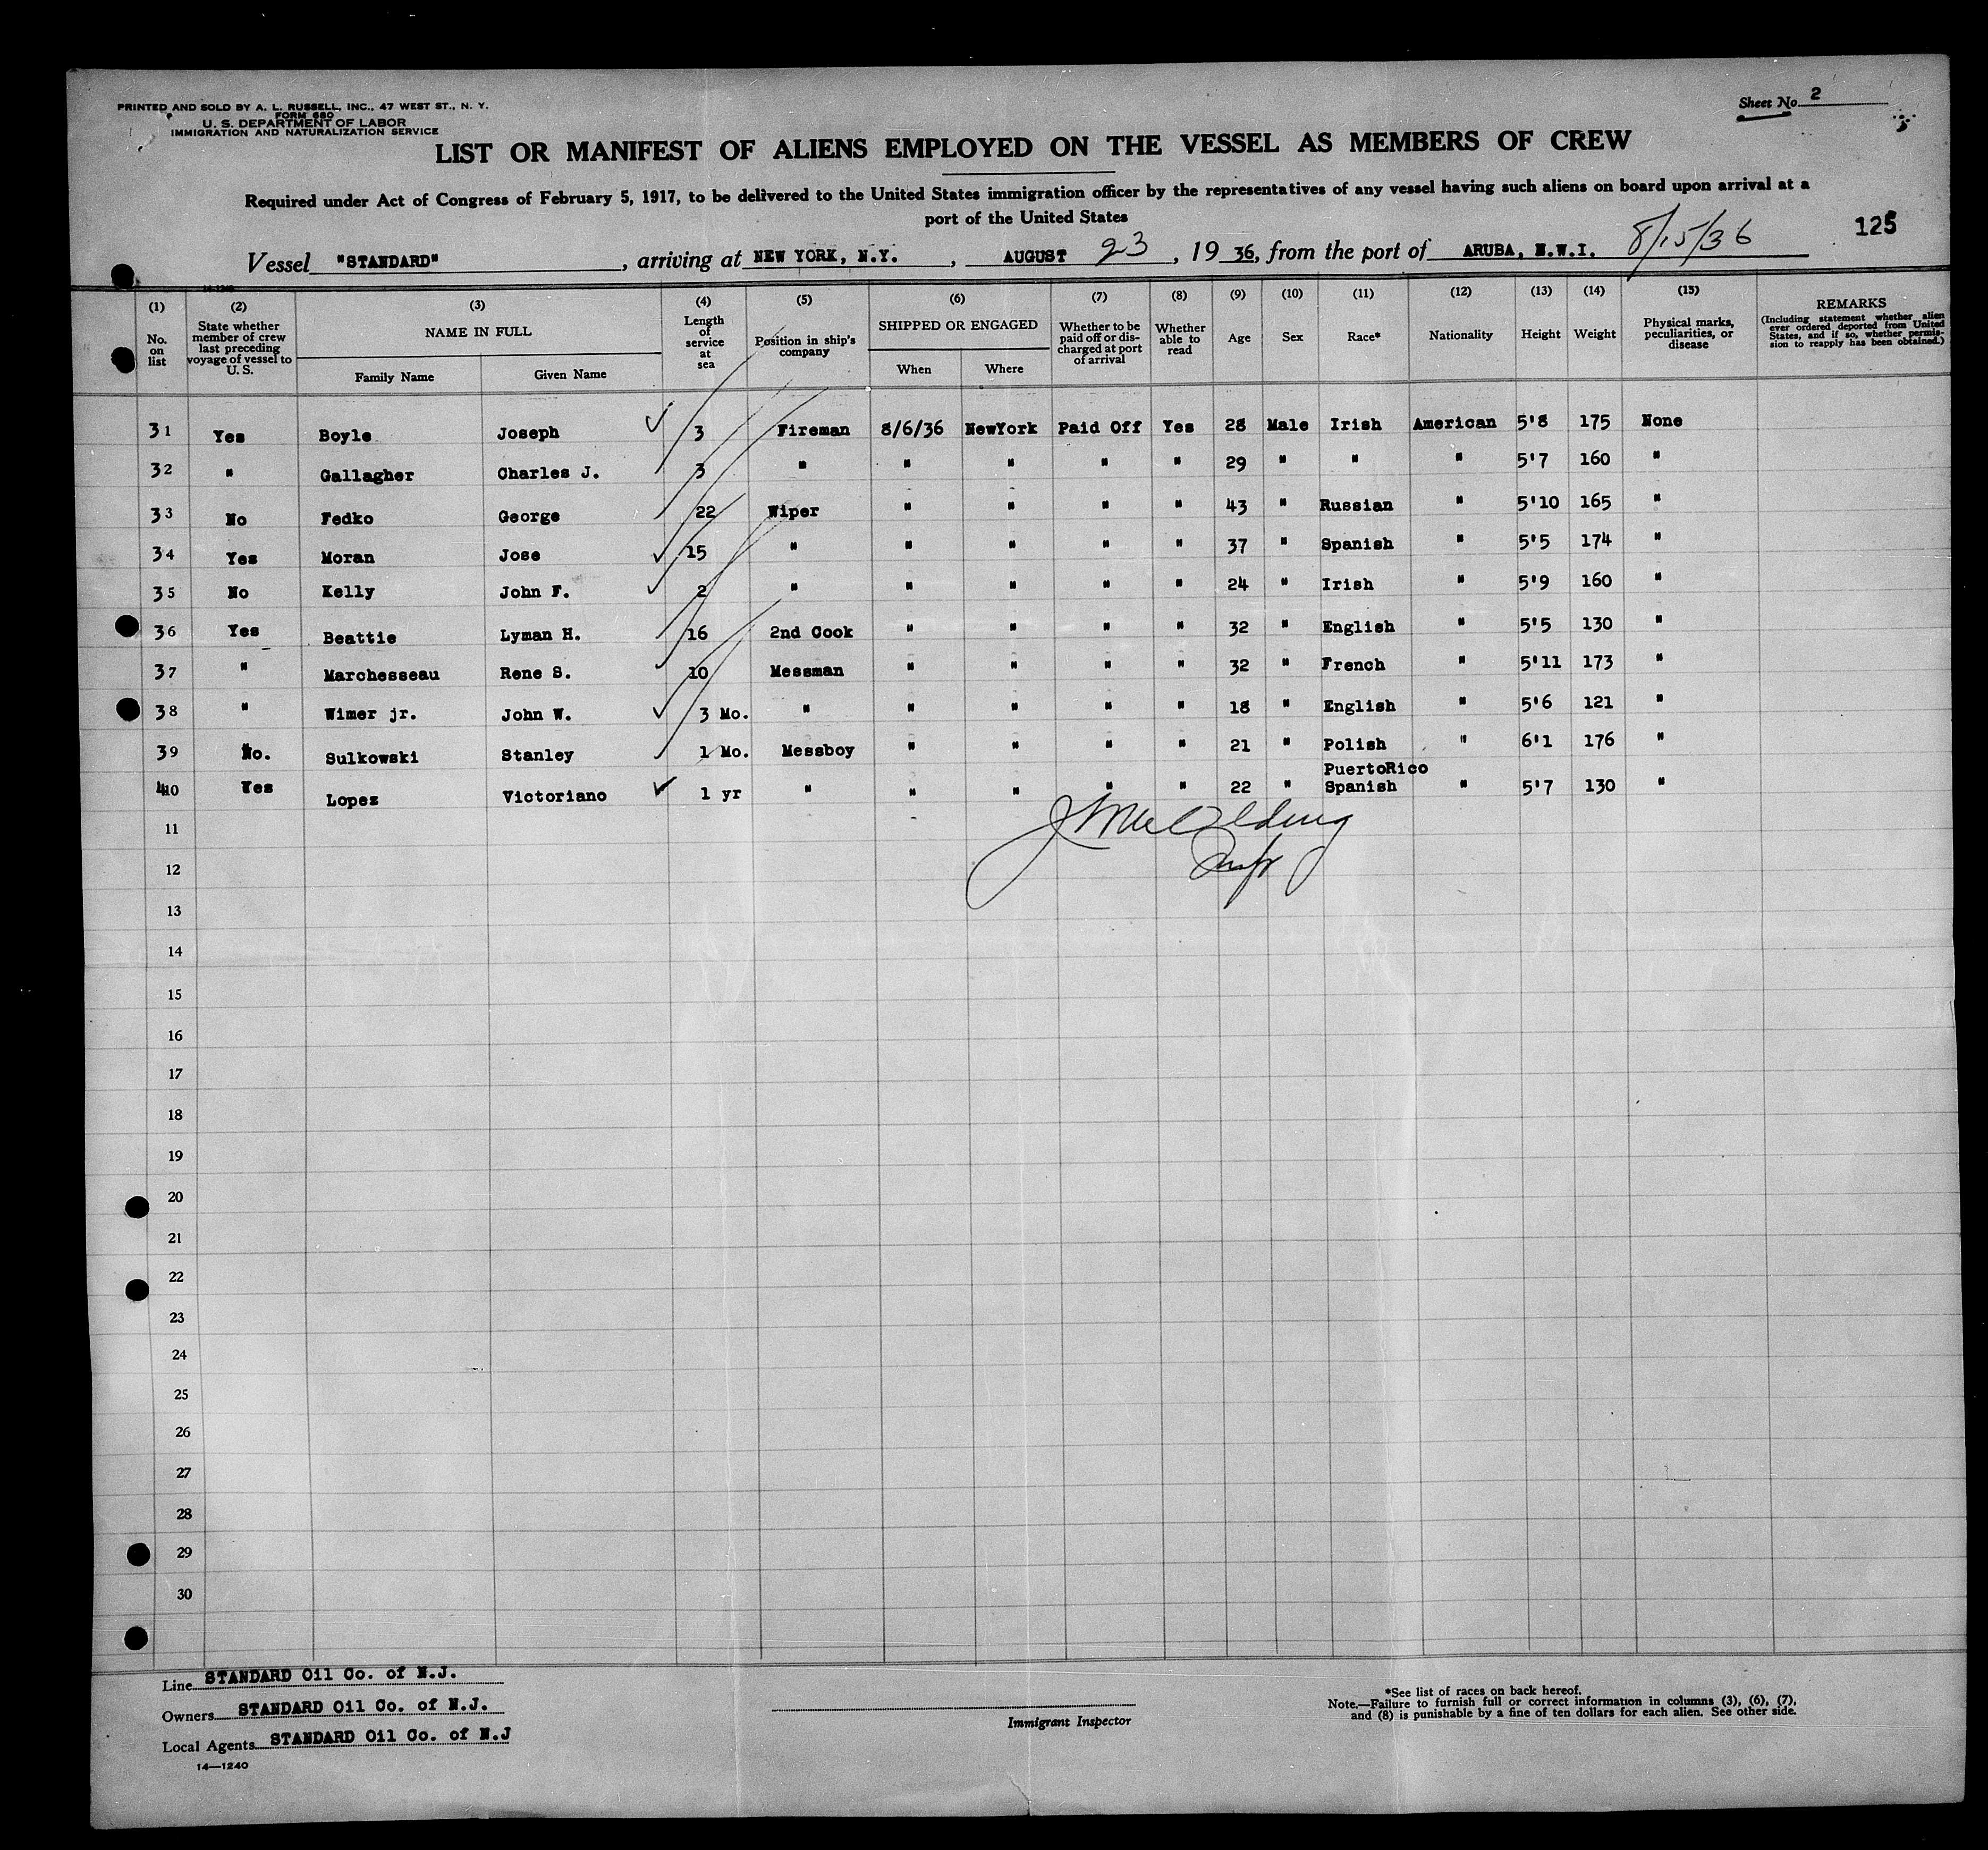 PRINTED AND SOLD BY A. L. RUSSELL, INC., 47 WEST ST., N. Y.
FORM 680
U. S. DEPARTMENT OF LABOR
IMMIGRATION AND NATURALIZATION SERVICE
Sheet No. 2
LIST OR MANIFEST OF ALIENS EMPLOYED ON THE VESSEL AS MEMBERS OF CREW
Required under Act of Congress of February 5, 1917, to be delivered to the United States immigration officer by the representatives of any vessel having such aliens on board upon arrival at a
port of the United States
125
Vessel "STANDARD", arriving at NEW YORK, N.Y., AUGUST 23, 1936, from the port of ARUBA, N.W.I. 8/15/36
(1) No. on list (2) State whether member of crew last preceding voyage of vessel to U. S. (3) NAME IN FULL Family Name Given Name (4) Length of service at sea (5) Position in ship's company (6) SHIPPED OR ENGAGED When Where (7) Whether to be paid off or discharged at port of arrival (8) Whether able to read (9) Age (10) Sex (11) Race* (12) Nationality (13) Height (14) Weight (15) Physical marks, peculiarities, or disease REMARKS (Including statement whether alien ever ordered deported from United States, and if so, whether permission to reapply has been obtained.)
31 Yes Boyle Joseph 3 Fireman 8/6/36 NewYork Paid Off Yes 28 Male Irish American 5'8 175 None
32 " Gallagher Charles J. 3 " " " " " 29 " " " 5'7 160 "
33 No Fedko George 22 Wiper " " " " 43 " Russian " 5'10 165 "
34 Yes Moran Jose 15 " " " " " 37 " Spanish " 5'5 174 "
35 No Kelly John F. 2 " " " " " 24 " Irish " 5'9 160 "
36 Yes Beattie Lyman H. 16 2nd Cook " " " " 32 " English " 5'5 130 "
37 " Marchesseau Rene S. 10 Messman " " " " 32 " French " 5'11 173 "
38 " Wimer jr. John W. 3 Mo. " " " " " 18 " English " 5'6 121 "
39 No. Sulkowski Stanley 1 Mo. Messboy " " " " 21 " Polish " 6'1 176 "
40 Yes Lopez Victoriano 1 yr " " " " " 22 " PuertoRico Spanish " 5'7 130 "
11
12
13
14
15
16
17
18
19
20
21
22
23
24
25
26
27
28
29
30
Line STANDARD Oil Co. of N.J.
Owners STANDARD Oil Co. of N.J.
Local Agents STANDARD Oil Co. of N.J
14—1240
Immigrant Inspector
*See list of races on back hereof.
Note.—Failure to furnish full or correct information in columns (3), (6), (7),
and (8) is punishable by a fine of ten dollars for each alien. See other side.